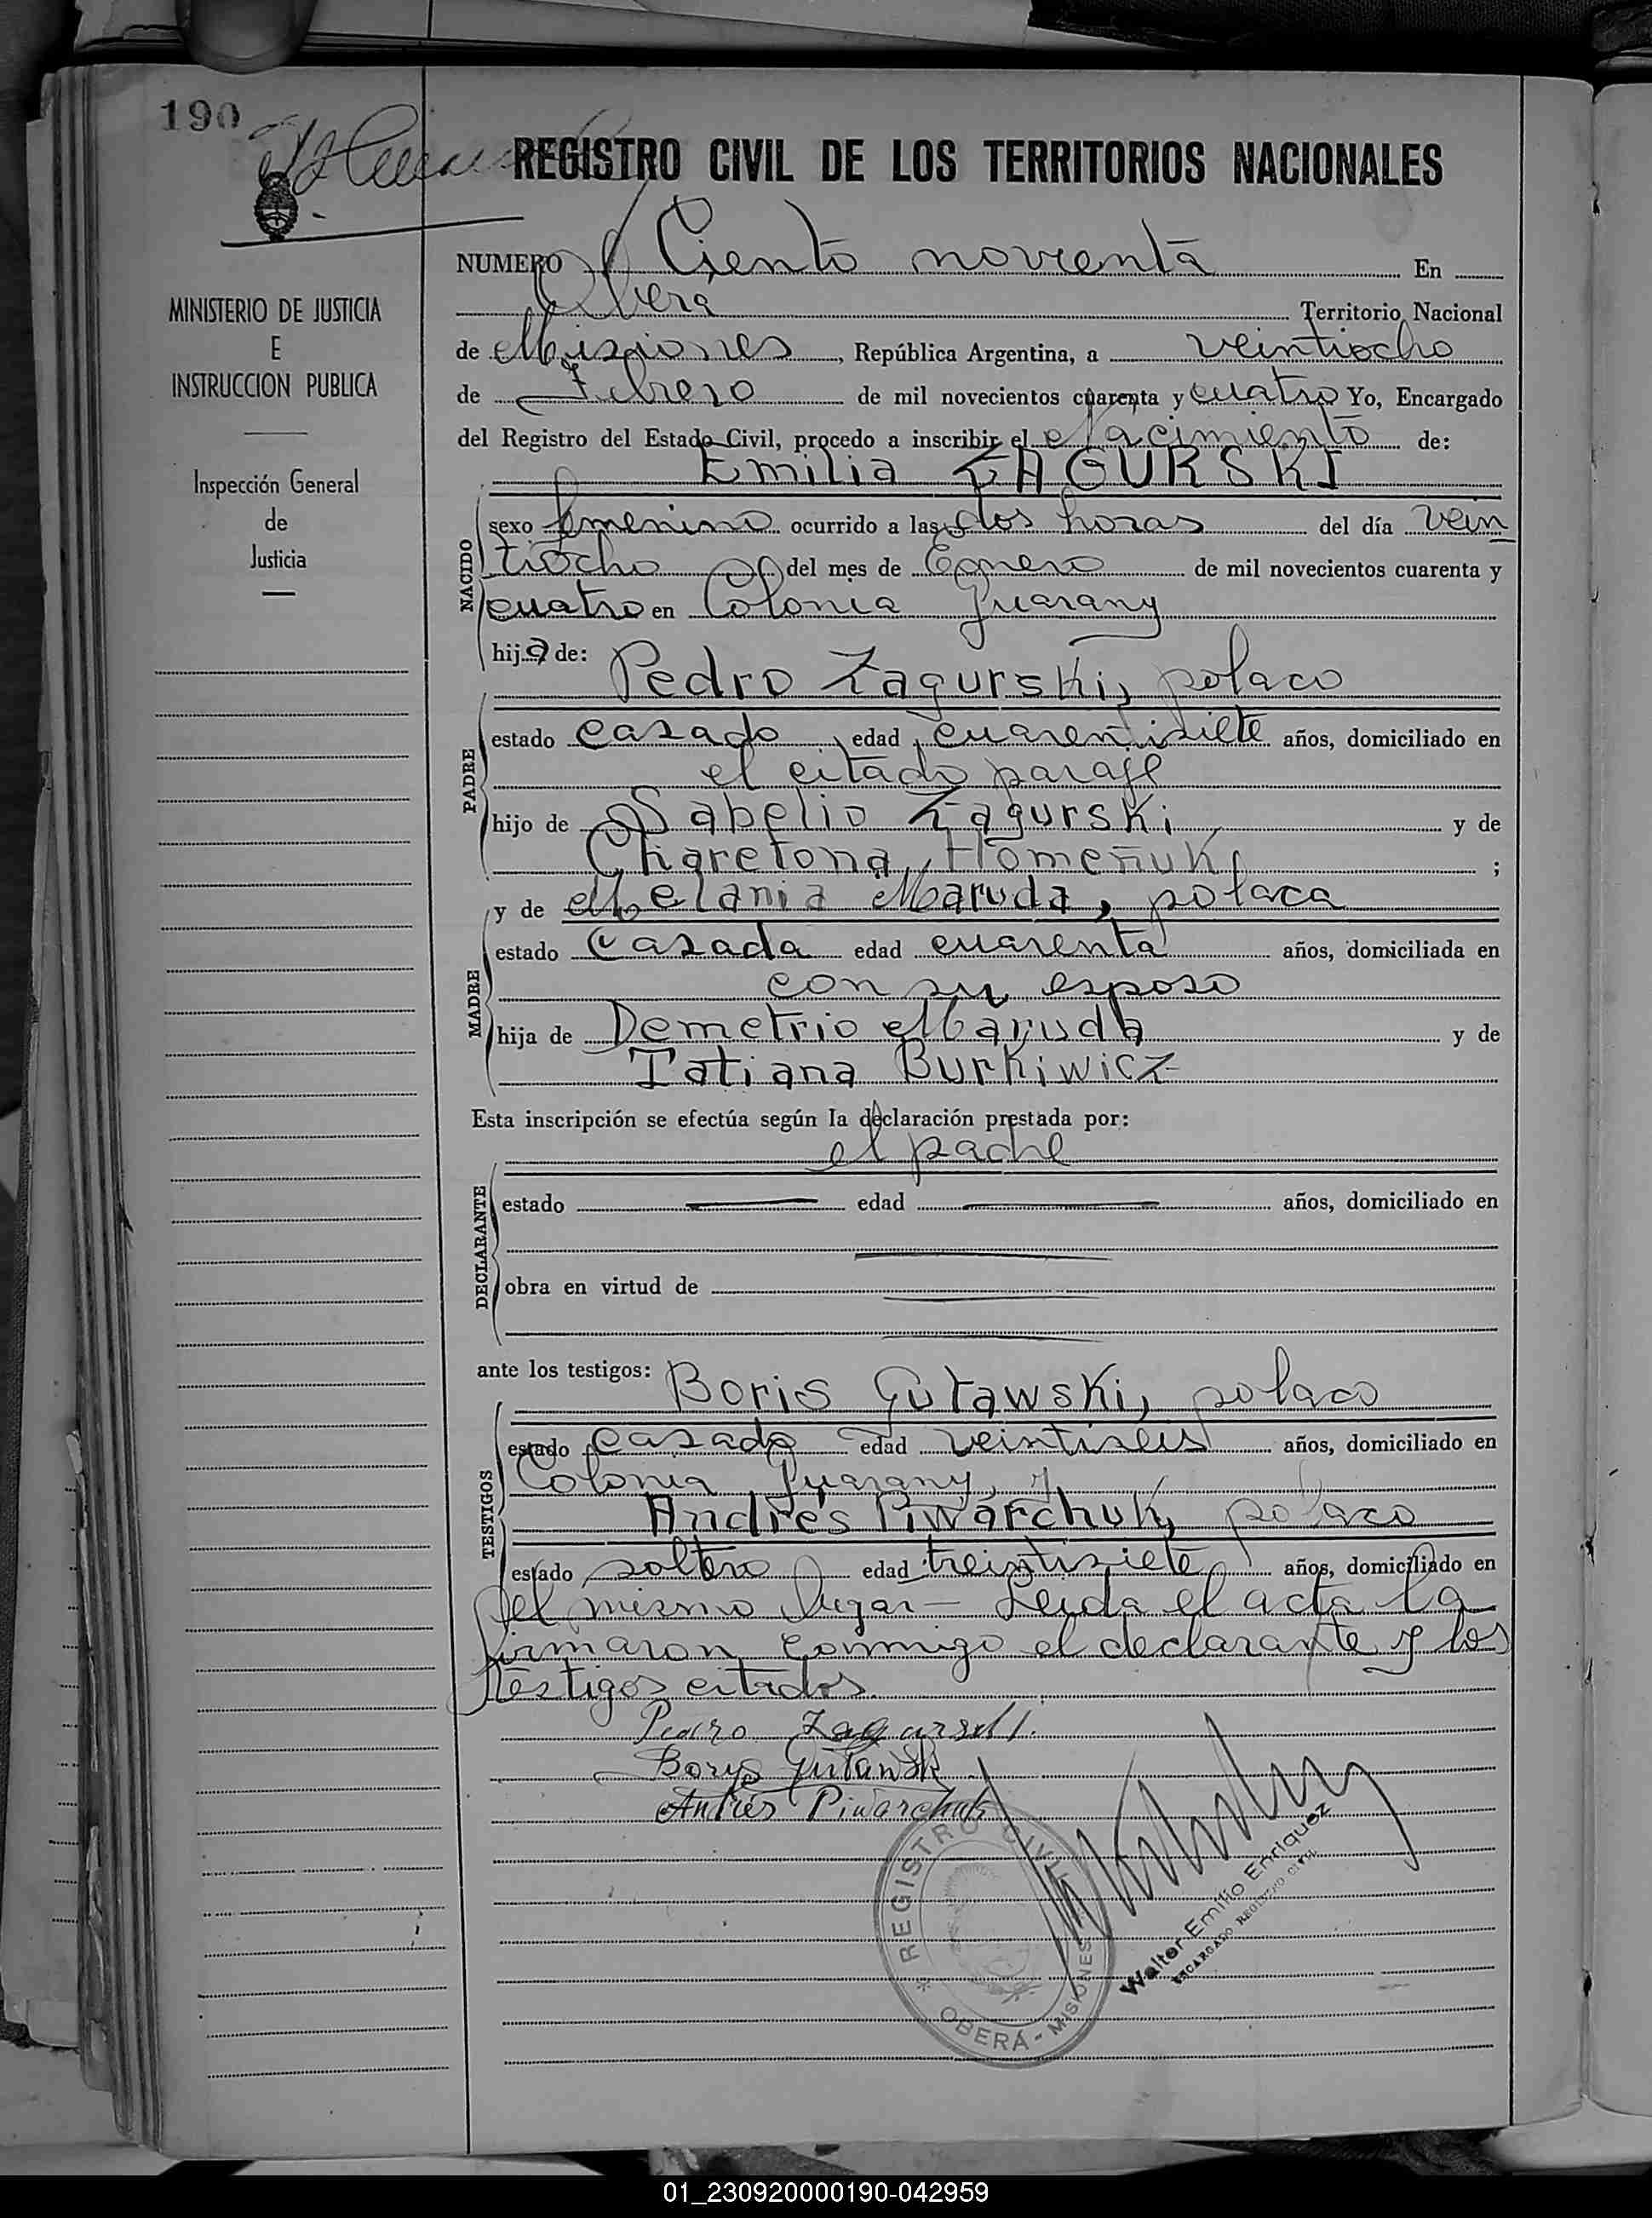 190
REGISTRO CIVIL DE LOS TERRITORIOS NACIONALES
MINISTERIO DE JUSTICIA
E
INSTRUCCION PUBLICA
Inspección General
de
Justicia
NUMERO Ciento noventa En
Oberá Territorio Nacional
de Misiones, República Argentina, a veintiocho
de Febrero de mil novecientos cuarenta y cuatro Yo, Encargado
del Registro del Estado Civil, procedo a inscribir el nacimiento de:
Emilia ZAGURSKI
NACIDO
sexo femenino ocurrido a las dos horas del día vein
tiocho del mes de Enero de mil novecientos cuarenta y
cuatro en Colonia Guarany
hija de:
Pedro Zagurski, polaco
PADRE
estado casado, edad cuarentisiete años, domiciliado en
el citado paraje
hijo de Sabelio Zagurski y de
Charetona Homeñuk;
y de Melania Maruda, polaca
MADRE
estado casada edad cuarenta años, domiciliada en
con su esposo
hija de Demetrio Maruda y de
Tatiana Burkiwicz
Esta inscripción se efectúa según la declaración prestada por:
el padre
DECLARANTE
estado edad años, domiciliado en
obra en virtud de
ante los testigos: Boris Gutawski, polaco
TESTIGOS
estado casado edad veintiseis años, domiciliado en
Colonia Guarany, y
Andrés Piwarchuk, polaco
estado soltero edad treintisiete años, domiciliado en
el mismo lugar — Leida el acta la
firmaron conmigo el declarante y los
testigos citados.
Pedro Zagurski
Borys Gutawski
Andrés Piwarchuk
REGISTRO CIVIL
OBERÁ - MISIONES
Walter Emilio Enriquez
ENCARGADO REGISTRO CIVIL
01_230920000190-042959